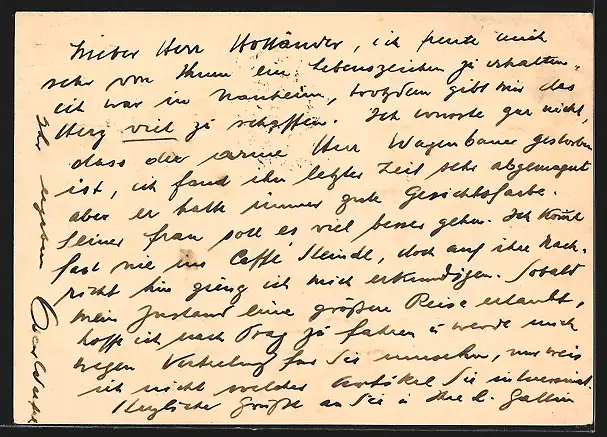 Lieber Herr Holländer, ich freute mich
sehr von Ihnen ein Lebenszeichen zu erhalten,
ich war in Nauheim, trotzdem gibt mir das
Herz viel zu schaffen. Ich wusste gar nicht,
dass der arme Herr Wagenbauer gestorben
ist, ich fand ihn letzter Zeit sehr abgemagert
aber er hatte immer gute Gesichtsfarbe.
Seiner Frau soll es viel besser gehen. Ich komme
fast nie ins Caffé Steindl, doch auf ihre Nach-
richt hin gieng ich mich erkundigen. Sobald
mein Zustand eine größere Reise erlaubt,
hoffe ich nach Prag zu fahren u werde mich
wegen Vertretung für Sie umsehen, nur weis
ich nicht welcher Artikel Sie interessirt.
Herzlicher Grüße an Sie u Ihre l. Gattin
Ihr ergeben